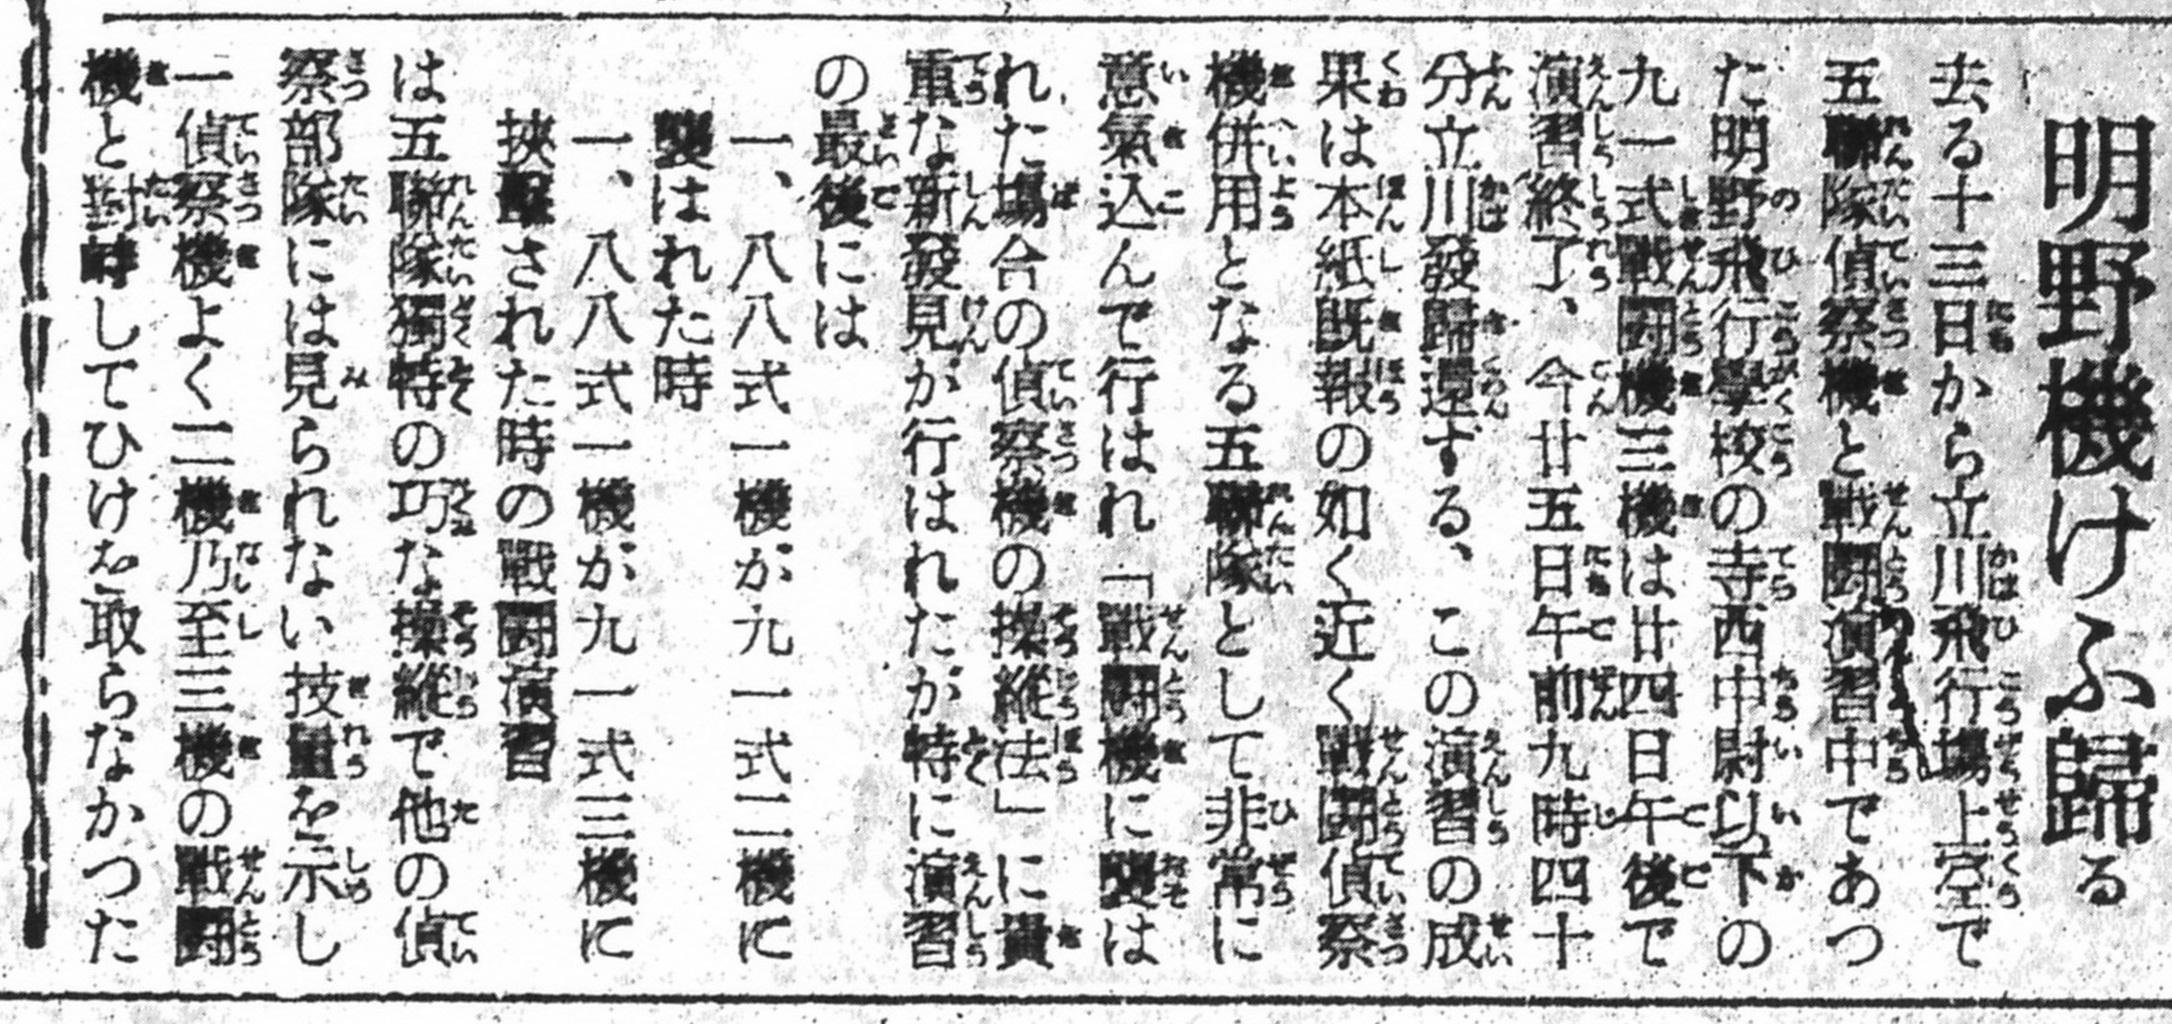 明野機けふ歸る
去る十三日から立川飛行場上空で
五聯隊偵察機と戰鬪演習中であつ
た明野飛行學校の寺西中尉以下の
九一式戰鬪機三機は廿四日午後で
演習終了、今廿五日午前九時四十
分立川發歸還する、この演習の成
果は本紙既報の如く近く戰鬪偵察
機併用となる五聯隊として非常に
意氣込んで行はれ「戰鬪機に襲は
れた場合の偵察機の操縱法」に貴
重な新發見が行はれたが特に演習
の最後には
一、八八式一機が九一式二機に
襲はれた時
一、八八式一機が九一式三機に
挾擊された時の戰鬪演習
は五聯隊獨特の巧な操縱で他の偵
察部隊には見られない技量を示し
一偵察機よく二機乃至三機の戰鬪
機と對峙してひけを取らなかつた